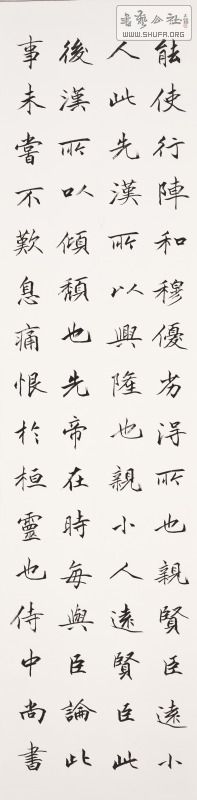 書藝公社
WWW.SHUFA.ORG
能使行陣和穆優劣得所也親賢臣遠小
人此先漢所以興隆也親小人遠賢臣此
後漢所以傾頹也先帝在時每與臣論此
事未嘗不歎息痛恨於桓靈也侍中尚書